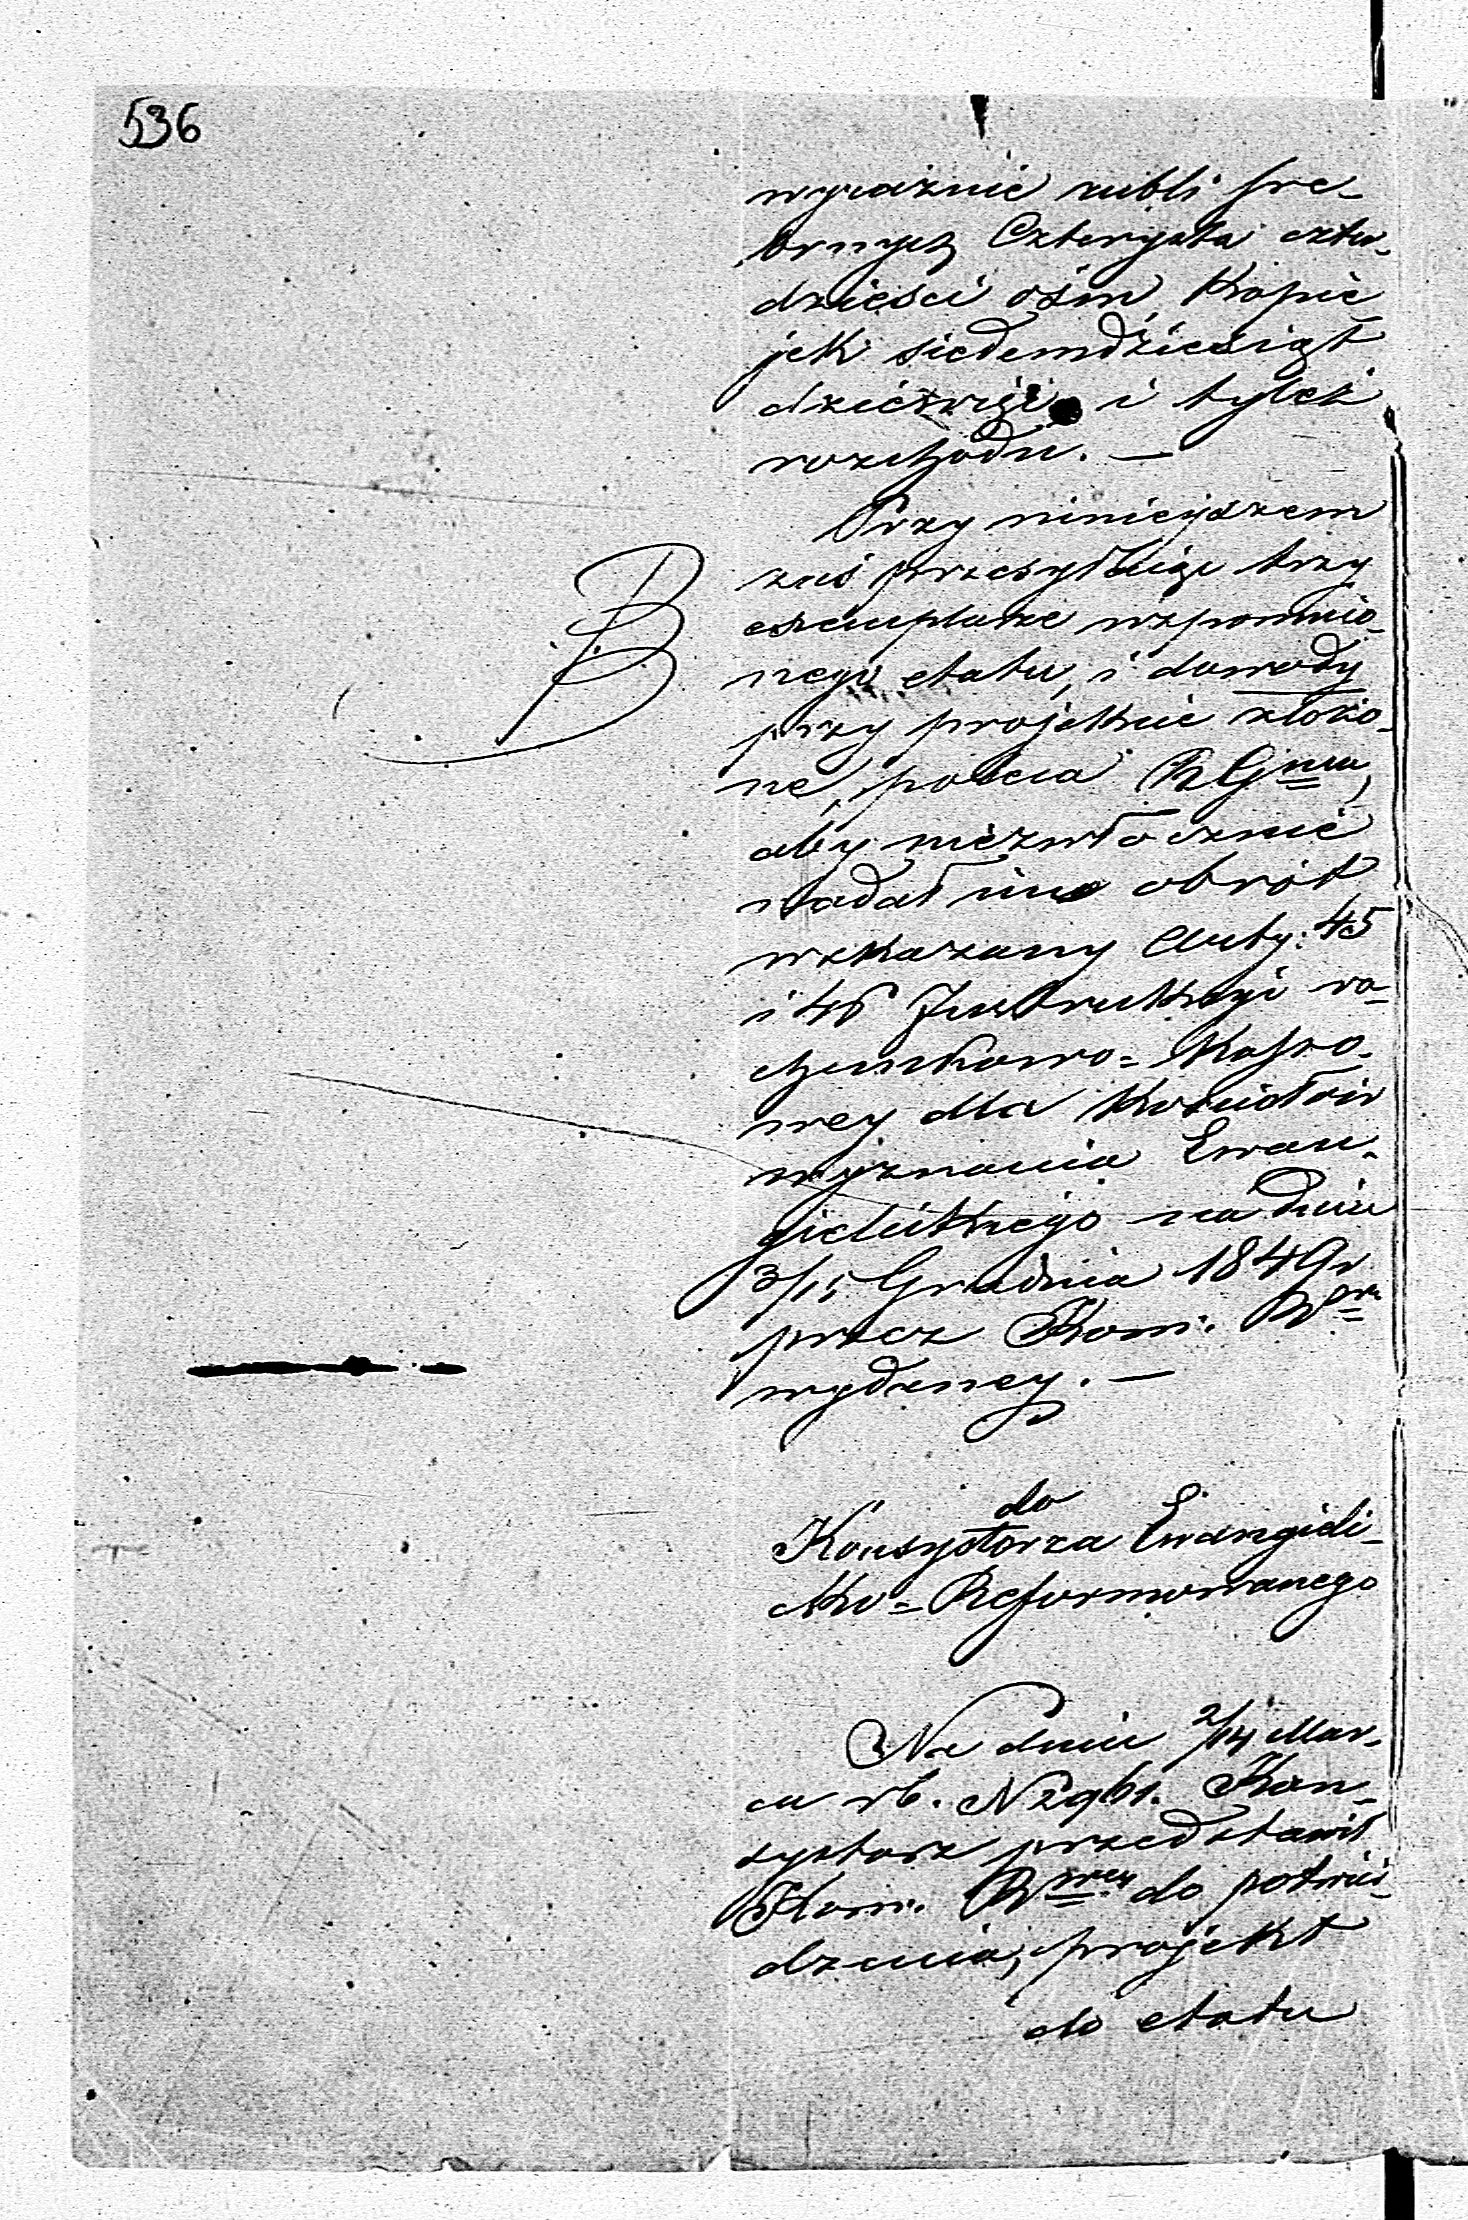 536
wyraźnie rubli sre-
brnych Czterysta czter-
dzieści ośm, Kopie-
jek siedemdziesiąt
dziewięć i tyleż
rozchodu. —
Przy niniejszem
zaś przesyłając trzy
exemplarze wspomnio-
nego etatu, i dowody
przy projekcie złożo-
ne, poleca RGmu,
aby niezwłocznie
nadał im obrót
wskazany Arty: 45
i 46 Instrukcyi ra-
chunkowo-Kasso-
wey dla Kościołów
wyznania Ewan-
gielickiego na dniu
3/15 Grudnia 1849 r
przez Kom. R
wydaney. —
B
do
Konsystorza Ewangieli-
cko-Reformowanego
Na dniu 2/14 Mar-
ca rb. N 2961. Kon-
systorz przedstawił
Kom. R do potwier-
dzenia, projekt
do etatu